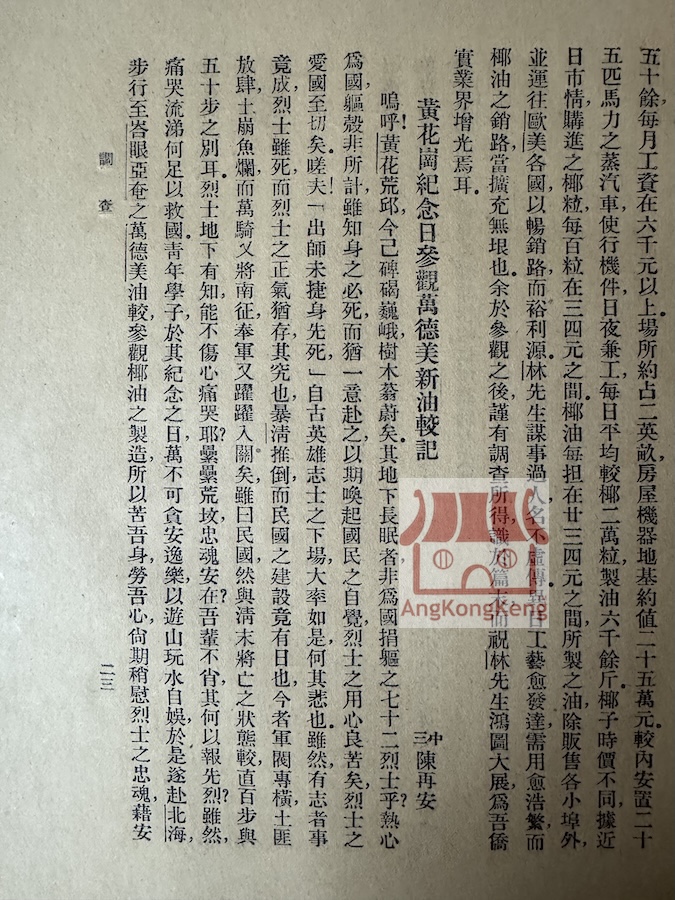 五十餘，每月工資在六千元以上。場所約占二英畝，房屋機器地基約值二十五萬元。較內安置二十
五匹馬力之蒸汽車，使行機件，日夜兼工，每日平均較椰二萬粒，製油六千餘斤。椰子時價不同，據近
日市情，購進之椰粒，每百粒在三四元之間。椰油每担在廿三四元之間，所製之油，除販售各小埠外，
並運往歐美各國，以暢銷路，而裕利源。林先生謀事過人，名不虛傳，異日工藝愈發達，需用愈浩繁，而
椰油之銷路，當擴充無垠也。余於參觀之後，謹有調查所得，識於篇末，而祝林先生鴻圖大展，爲吾僑
實業界增光焉耳。
黃花崗紀念日參觀萬德美新油較記
中三 陳再安
嗚呼！黃花荒邱，今已碑碣巍峨，樹木蓊蔚矣。其地下長眠者，非爲國捐軀之七十二烈士乎？熱心
爲國，軀殼非所計，雖知身之必死，而猶一意赴之，以期喚起國民之自覺，烈士之用心良苦矣，烈士之
愛國至切矣。嗟夫！「出師未捷身先死」自古英雄志士之下場，大率如是，何其悲也。雖然，有志者事
竟成，烈士雖死，而烈士之正氣猶存，其究也，暴淸推倒，而民國之建設竟有日也。今者軍閥專橫，土匪
放肆，土崩魚爛，而萬騎又將南征，奉軍又躍躍入關矣，雖曰民國，然與淸末將亡之狀態較，直百步與
五十步之別耳。烈士地下有知，能不傷心痛哭耶？纍纍荒坟，忠魂安在？吾輩不肖，其何以報先烈？雖然，
痛哭流涕，何足以救國，青年學子，於其紀念之日，萬不可貪安逸樂，以遊山玩水自娛，於是遂赴北海，
步行至峇眼亞奄之萬德美油較，參觀椰油之製造，所以苦吾身，勞吾心，尙期稍慰烈士之忠魂，藉安
調查
二三
AngKongKeng